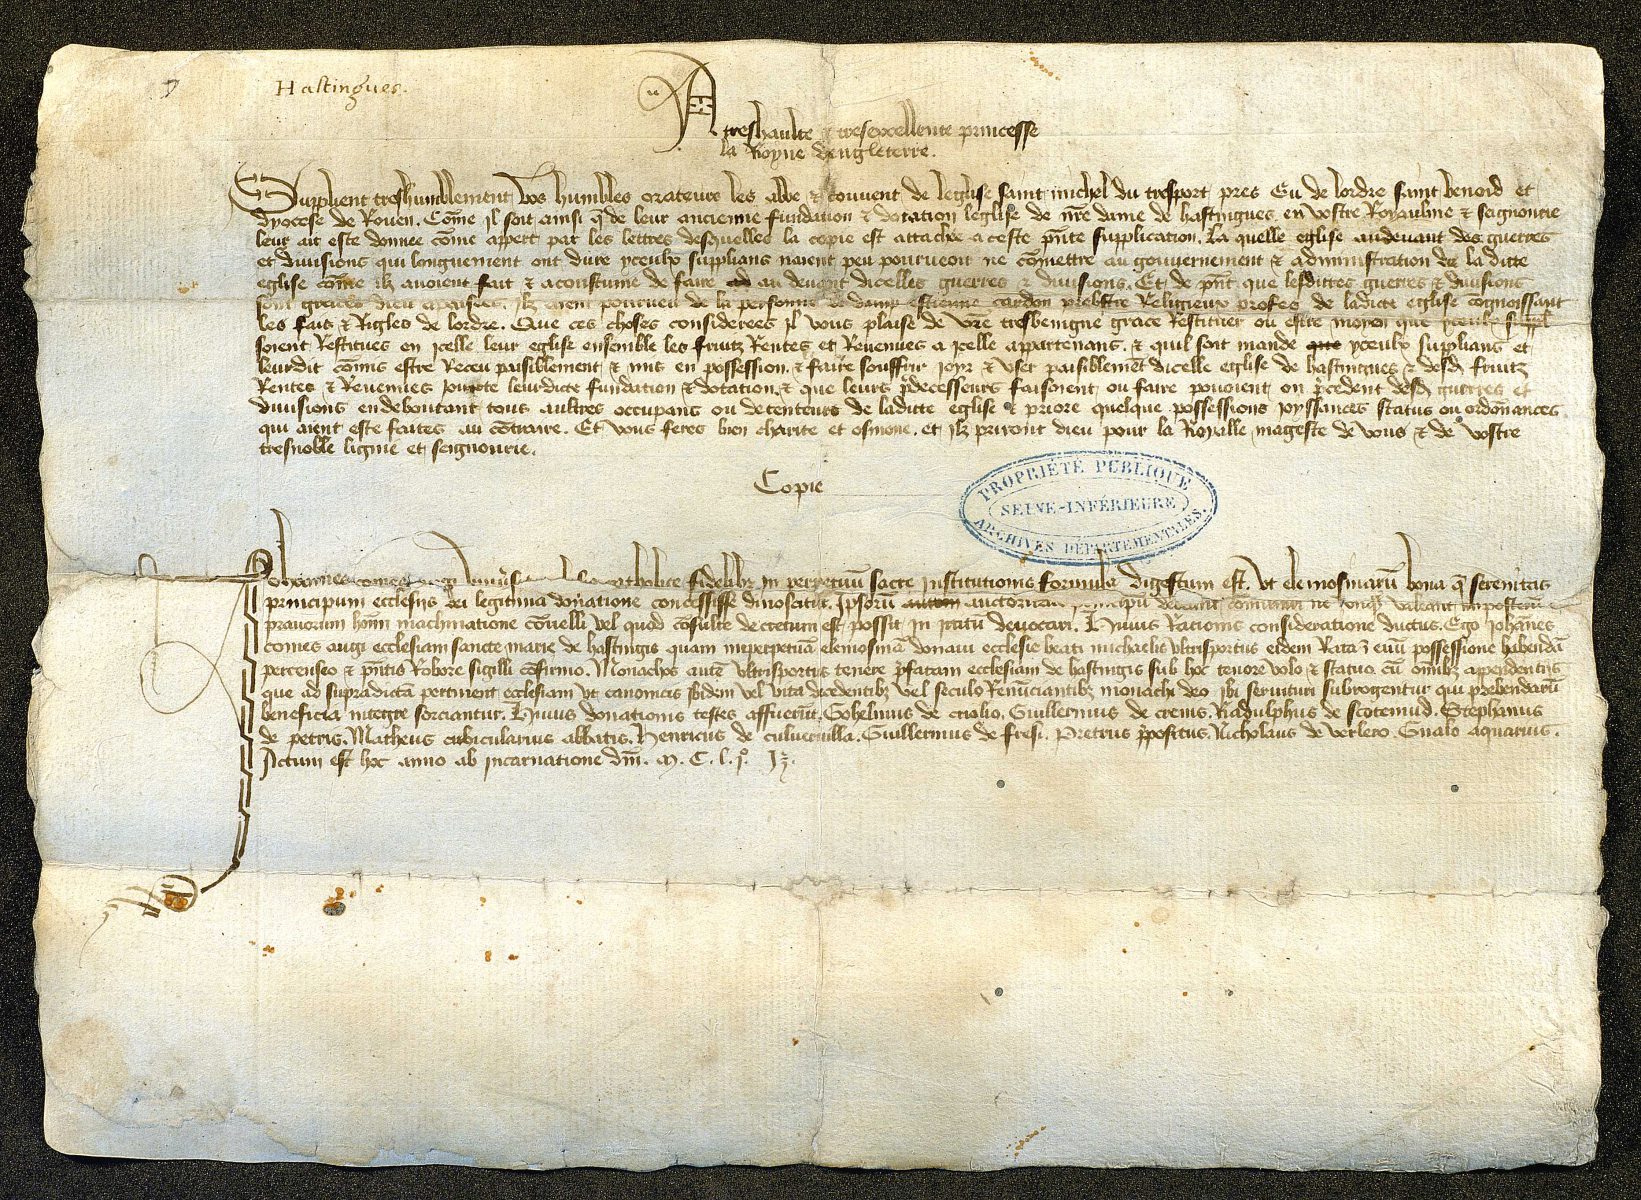 Hastingues.
A
treshaulte & tresexcellente princesse
la Royne dengleterre.
Supplient treshumblement voz humbles orateurs les abbe & couvent de leglise saint michel du tresport pres Eu de lordre saint benoid et
dyocese de Rouen. Come il soit ainsi q de leur ancienne fundation & dotation leglise de nre dame de hastingues en vostre Royaulme & seignourie
leur ait este donnee come appert par les lettres desquelles la copie est attachee a ceste pnte supplication. La quelle eglise audevant des guerres
et divisions qui longuement ont dure yceulx supplians naient peu pourveoir ne comettre au gouvernement & administration de la ditte
eglise come ilz avoient fait & acoustume de faire au devant dicelles guerres & divisions. Et de pnt que lesdittes guerres & divisions
sont graces dieu apaisees ilz aient pourveu de la personne de damp estienne cardon prebstre Religieux profes de ladicte eglise cognoissant
les fais & Rigles de lordre. Que ces choses considerees il vous plaise de vre tresbenigne grace Restituer ou estre moyen que yceulx suppl
soient Restitues en icelle leur eglise ensemble les fruitz Rentes et Revenues a icelle appartenans. & quil soit mande yceulx supplians et
leurdit comis estre Receu paisiblement & mis en possession. & faire souffrir joyr & user paisiblemet dicelle eglise de hastingues & desd fruitz
Rentes & Revenues jouxte leurdicte fundation & dotation. & que leurs pdecesseurs faisoient ou faire povoient ou pcedent desd guerres et
divisions en deboutant tous aultres occupans ou detenteurs de laditte eglise & priore quelque possessions joyssances status ou ordonances
qui aient este faites au contraire. Et vous feres bien charite et osmone. et ilz priront dieu pour la Royalle mageste de vous & de vostre
tresnoble lignie et seignourie.
Copie
PROPRIÉTÉ PUBLIQUE
SEINE-INFÉRIEURE
ARCHIVES DÉPARTEMENTALES.
Johannes comes augi catholice fidelibz in perpetuu sacre institutionis formula digestum est. Ut elemosinaru bona q serenitas
principum ecclesijs dei legitima donatione concessisse dinoscitur. Ipsoru auctoritate
pravorum hom machinatione convelli vel quod consulte decretum est possit in irritu devocari. Hujus Rationis consideratione ductus. Ego Johanes
comes augi ecclesiam sancte marie de hastingis quam inperpetua elemosina donavi ecclesie beati michaelis ultrisportus eidem Rata possessione habenda
percenseo & pntis Robore sigilli confirmo. Monachos aute ultrisportus tenere pfatam ecclesiam de hastingis sub hoc tenore volo & statuo. cu omibz appendentijs
que ad supradicta pertinent ecclesiam ut canonicis ibidem vel vita decedentibz vel seculo Renuciantibz monachi deo ibi servituri subrogentur qui prebendaru
beneficia integre sorciantur. Hujus donationis testes affuerut. Gohelmus de criolio. Guillermus de crenis. Radulphus de scotenud. Stephanus
de petris. Matheus cubicularius abbatis. Henricus de culvervilla. Guillermus de fresi. Pretrus ppositus. Nicholaus de verlero. Gualo aquarius.
Actum est hoc anno ab incarnatione dni. M. C. l. j.